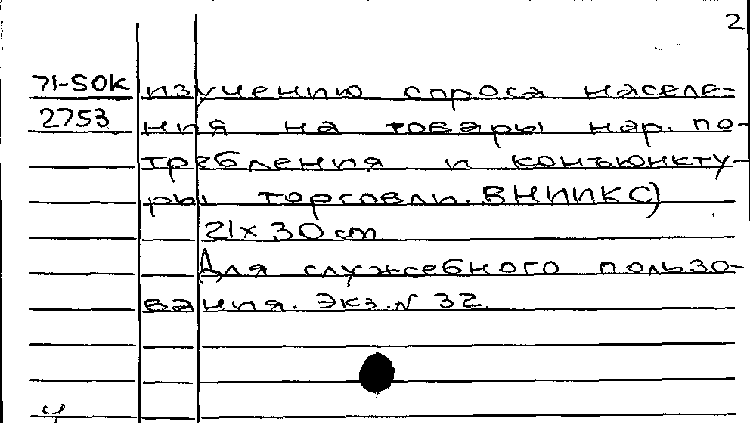 2
71-SOK изучению спроса населе-
2753 ния на товары нар. по-
требления и конъюнкту-
ры торговли. ВНИИКС)
21 x 30 cm
Для служебного пользо-
вания. Экз. N 32